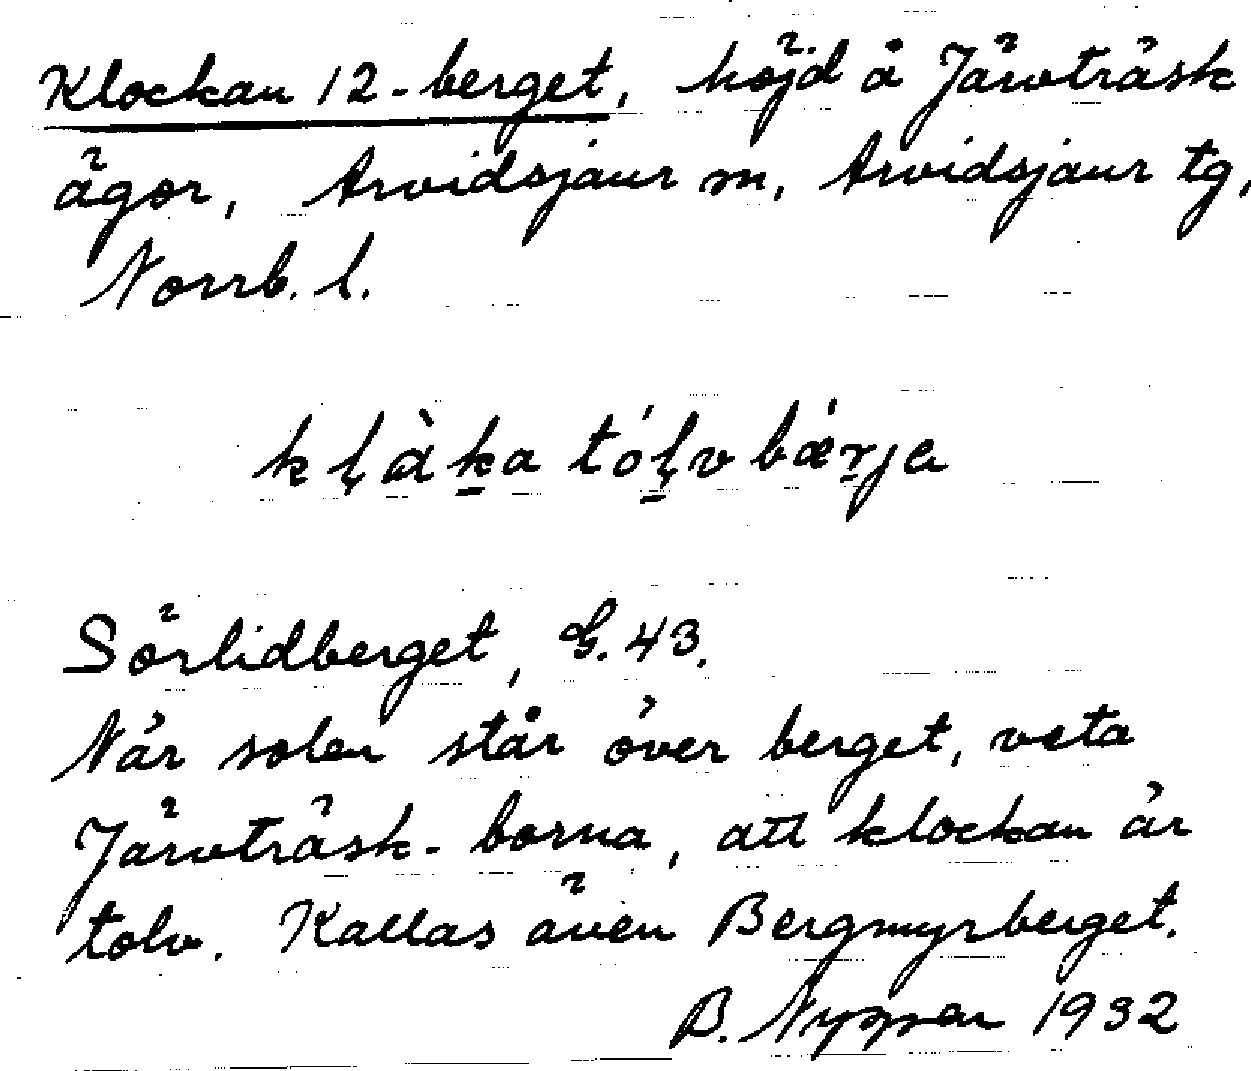 Klockan 12-berget, höjd å Järvträsk
ägor, Arvidsjaur sn, Arvidsjaur tg,
Norrb. l.
kḷàk̠a tóḷ̠v bǽr̠ja
Sörlidberget, G. 43.
När solen står över berget, veta
Järvträsk-borna, att klockan är
tolv. Kallas även Bergmyrberget.
B. 1932